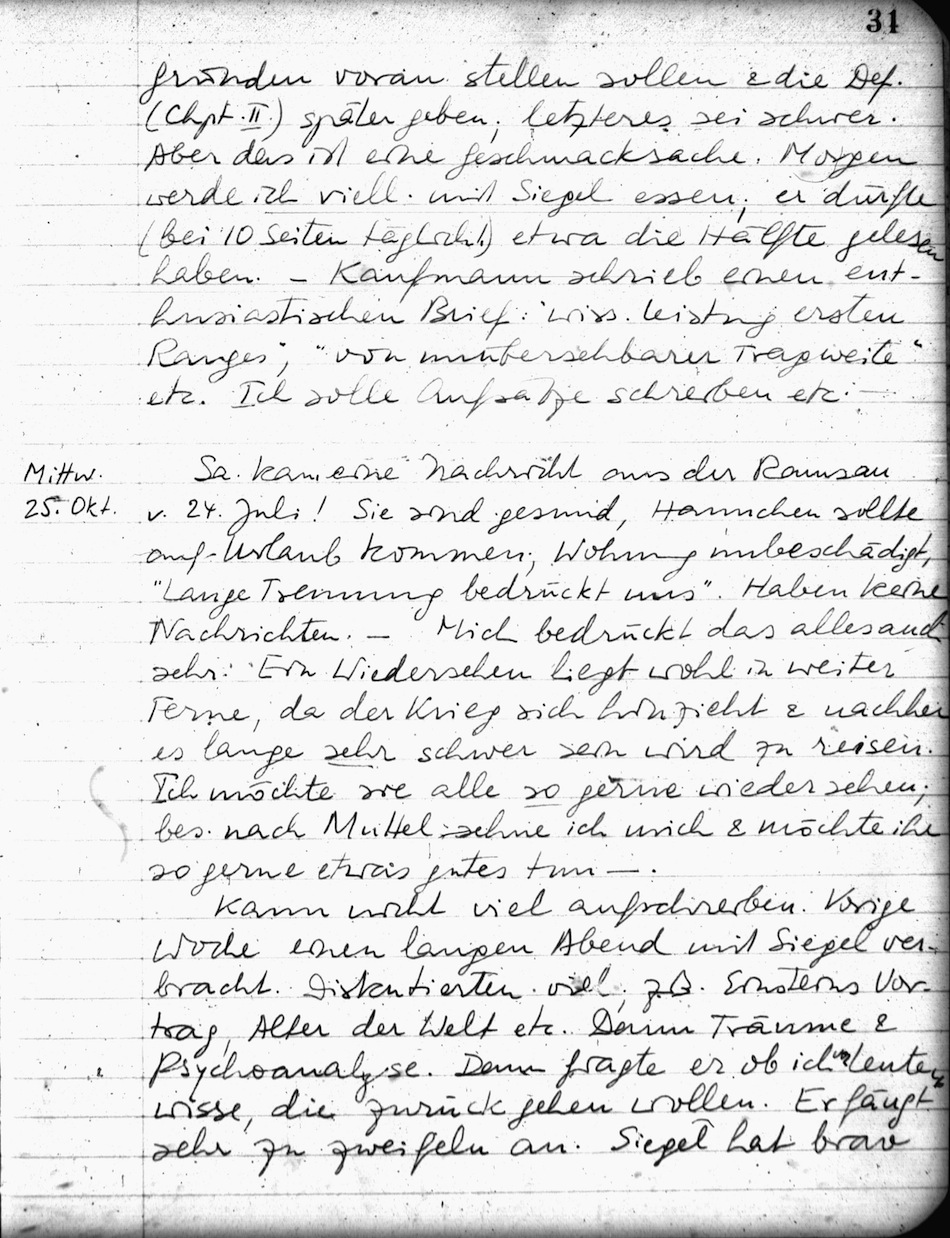 31
gründen voran stellen sollen & die Def.
(Chpt. II.) später geben; letzteres sei schwer.
Aber das ist eine Geschmacksache. Morgen
werde ich viell. mit Siegel essen; er dürfte
(bei 10 Seiten täglich!) etwa die Hälfte gelesen
haben. — Kaufmann schrieb einen ent-
husiastischen Brief: "wiss. Leistung ersten
Ranges", "von unübersehbarer Tragweite"
etc. Ich solle Aufsätze schreiben etc. —
Mittw. Sa. kam eine Nachricht aus der Ramsau
25. Okt. v. 24. Juli! Sie sind gesund, Hannchen sollte
auf Urlaub kommen; Wohnung unbeschädigt,
"Lange Trennung bedrückt uns". Haben keine
Nachrichten. — Mich bedrückt das alles auch
sehr: Ein Wiedersehen liegt wohl in weiter
Ferne, da der Krieg sich hinzieht & nachher
es lange sehr schwer sein wird zu reisen.
Ich möchte sie alle so gerne wiedersehen;
bes. nach Muttel sehne ich mich & möchte ihr
so gerne etwas gutes tun —.
Kann nicht viel aufschreiben. Vorige
Woche einen langen Abend mit Siegel ver-
bracht. Diskutierten viel, zB. Ernsteins Vor-
trag, Alter der Welt etc. Dann Träume &
Psychoanalyse. Dann fragte er ob ich von Leuten
wisse, die zurück gehen wollen. Er fängt
sehr zu zweifeln an. Siegel hat brav